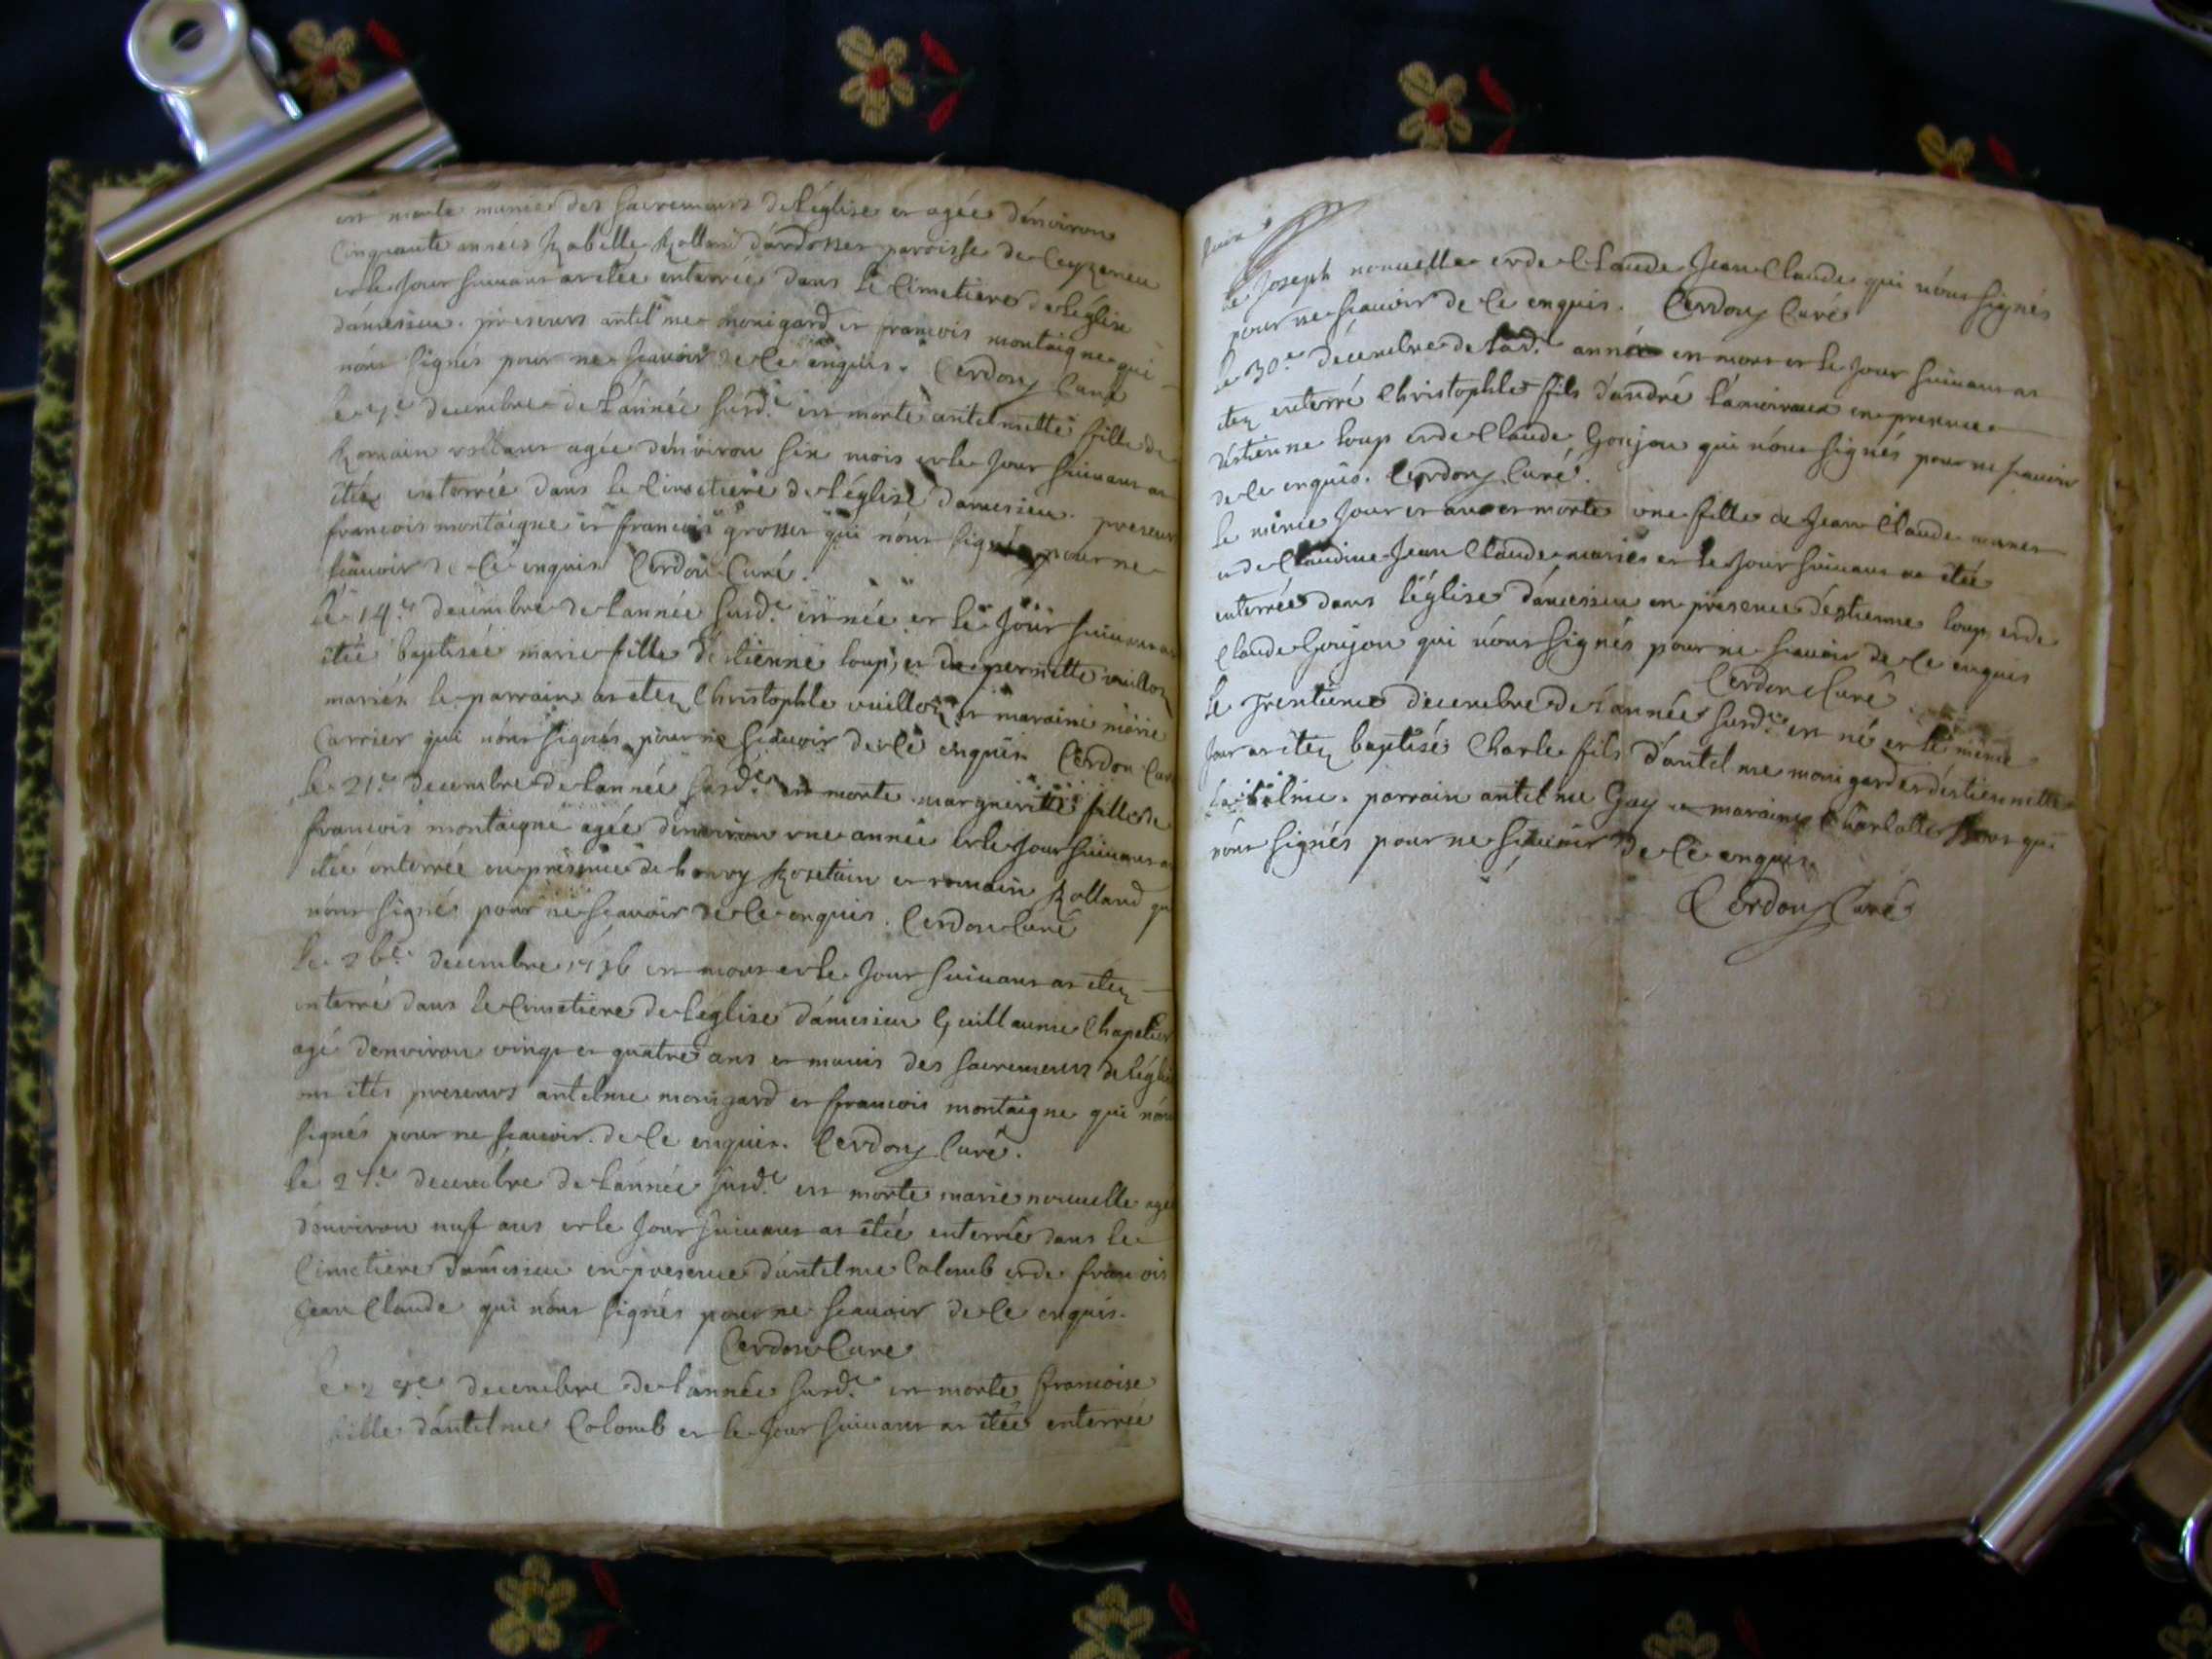 est morte munie des sacremens de l'église et agée d'environ
Cinquante années Rollin d'ardosset paroisse de Ceyzerieu
et le jour suivant at etée enterrée dans le Cimetiere de l'église
d'amesieu. presens antelme monigard et francois montaigne qui
n'ont signés pour ne scavoir de ce enquis. Cerdon Curé
le decembre de l'année susd.e est morte antelmette fille de
Romain rollant agée d'environ six mois et le jour suivant at
étée enterrée dans le Cimetiere de l'église d'amesieu. presens
francois montaigne et francois grosset qui n'ont signés pour ne
scavoir de ce enquis Cerdon Curé.
le 14.e decembre de l'année susd.e est née et le jour suivant at
étée baptisée marie fille d'estienne loup, et de pernette vuilloz
mariés le parrain at etez Christophle vuilloz et maraine marie
Carrier qui n'ont signés pour ne scavoir de ce enquis Cerdon Curé
le 21.e decembre de l'année susd.e est morte margueritte fille de
francois montaigne agée d'environ une année et le jour suivant at
étée enterrée en presence de henry Rosetain et romain Rolland qui
n'ont signé pour ne scavoir de ce enquis. Cerdon Curé
le 26.e decembre 1736 est mort et le jour suivant at etez
enterré dans le Cimetiere de l'église d'amesieu Guillaume Chapelier
agé d'environ vingt et quatre ans et munis des sacremens de l'église
ont étés presents antelme monigard et francois montaigne qui n'ont
signés pour ne scavoir de ce enquis. Cerdon Curé.
le 27.e decembre de l'année susd.e est morte marie nouvelle agée
d'environ nuf ans et le jour suivant at étée enterrée dans le
Cimetiere d'amesieu en presence d'antelme Colomb et de francois
Jean Claude qui n'ont signés pour ne scavoir de ce enquis.
Cerdon Curé
decembre de l'année susd.e est morte francoise
fille d'antelme Colomb et le jour suivant at étée enterrée
de Joseph nouvelle et de Claude Jean Claude qui n'ont signés
pour ne scavoir de ce enquis. Cerdon Curé
le 30.e decembre de lad.e année est mort et le jour suivant at
etez enterré Christophle fils d'andré lamoiraux en presence
d'estienne loup et de Claude Goujon qui n'ont signés pour ne scavoir
de ce enquis. Cerdon Curé.
le même jour et an est morte une fille de Jean Claude
et de Claudine Jean Claude mariés et le jour suivant at étée
enterrée dans l'église d'amesieu en presence d'estienne loup et de
Claude Goujon qui n'ont signés pour ne scavoir de ce enquis
Cerdon Curé
le trentieme decembre de l'année susd.e est né et le même
jour at etez baptisé Charle fils d'antelme monigard et d'estiennette
parrain antelme Gay et maraine Charlotte qui
n'ont signés pour ne scavoir de ce enquis
Cerdon Curé